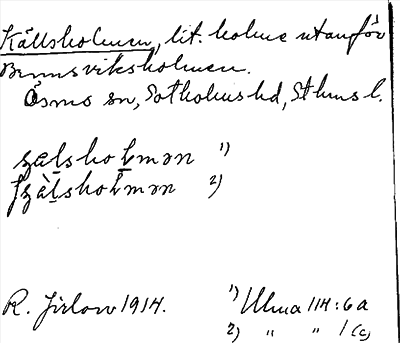 Källsholmen, lit. holme utanför
Brunnsviksholmen.
Ösmo sn, Sotholms hd, Sthms l.
sɛḷshoḷmən 1)
ʃzàḷshoḷmən 2)
R. Jirlow 1914. 1) Ulma 114:6a
2) " " 1(c)